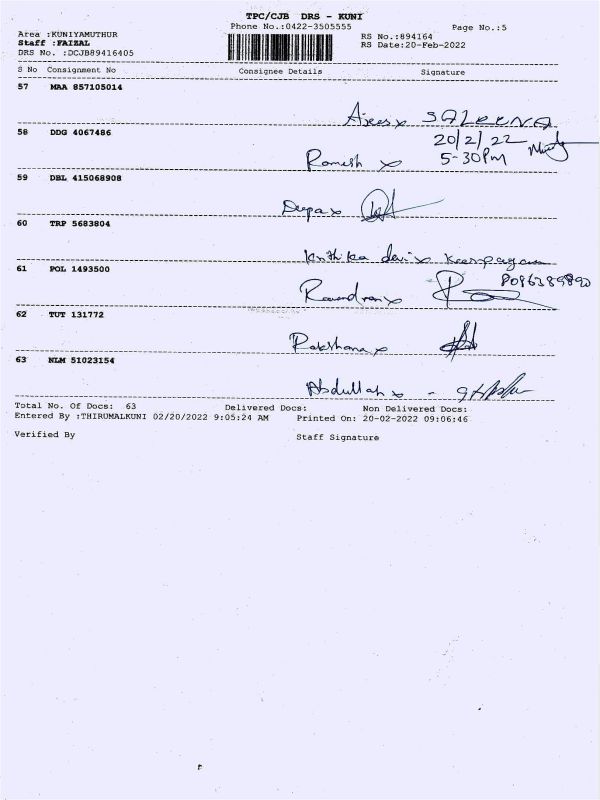 TPC/CJB DRS - KUNI
Phone No.:0422-3505555 Page No.:5
Area :KUNIYAMUTHUR RS No.:894164
Staff :FAIZAL RS Date:20-Feb-2022
DRS No. :DCJB89416405
S No Consignment No Consignee Details Signature
57 MAA 857105014
Ajees x SALEENA
58 DDG 4067486 20/2/22
Ramesh x 5-30Pm
59 DBL 415068908
Deepa x
60 TRP 5683804
Krithika devi x Karpagam
61 POL 1493500
Ravindran x
62 TUT 131772
Rakshana x
63 NLM 51023154
Abdullah x -
Total No. Of Docs: 63 Delivered Docs: Non Delivered Docs:
Entered By :THIRUMALKUNI 02/20/2022 9:05:24 AM Printed On: 20-02-2022 09:06:46
Verified By Staff Signature